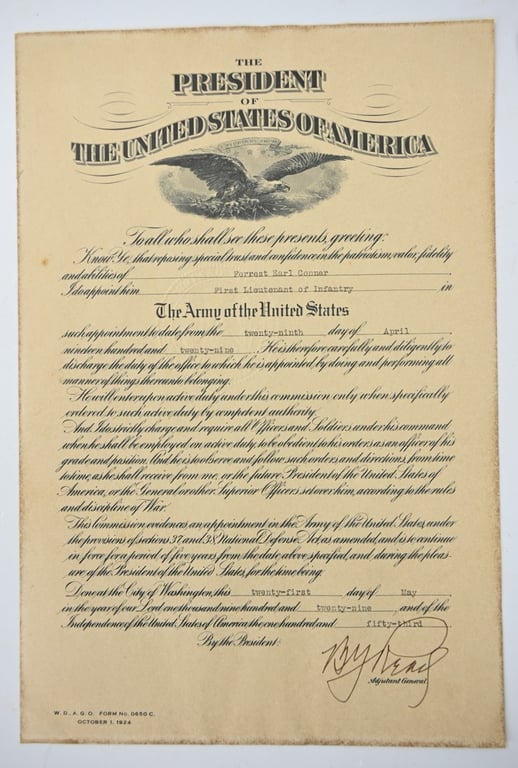 THE
PRESIDENT
OF
THE UNITED STATES OF AMERICA
To all who shall see these presents, greeting:
Know Ye, that reposing special trust and confidence in the patriotism, valor, fidelity
and abilities of Forrest Earl Conner
I do appoint him First Lieutenant of Infantry in
The Army of the United States
such appointment to date from the twenty-ninth day of April
nineteen hundred and twenty-nine. He is therefore carefully and diligently to
discharge the duty of the office to which he is appointed by doing and performing all
manner of things thereunto belonging.
He will enter upon active duty under this commission only when specifically
ordered to such active duty by competent authority.
And I do strictly charge and require all Officers and Soldiers under his command
when he shall be employed on active duty, to be obedient to his orders as an officer of his
grade and position. And he is to observe and follow such orders and directions, from time
to time, as he shall receive from me, or the future President of the United States of
America, or the General or other Superior Officers set over him, according to the rules
and discipline of War.
This Commission evidences an appointment in the Army of the United States, under
the provisions of sections 37 and 38 National Defense Act, as amended, and is to continue
in force for a period of five years from the date above specified, and during the pleas-
ure of the President of the United States, for the time being.
Done at the City of Washington, this twenty-first day of May
in the year of our Lord one thousand nine hundred and twenty-nine, and of the
Independence of the United States of America the one hundred and fifty-third.
By the President:
Adjutant General.
W. D., A. G. O. FORM No. 0650 C.
OCTOBER 1, 1924